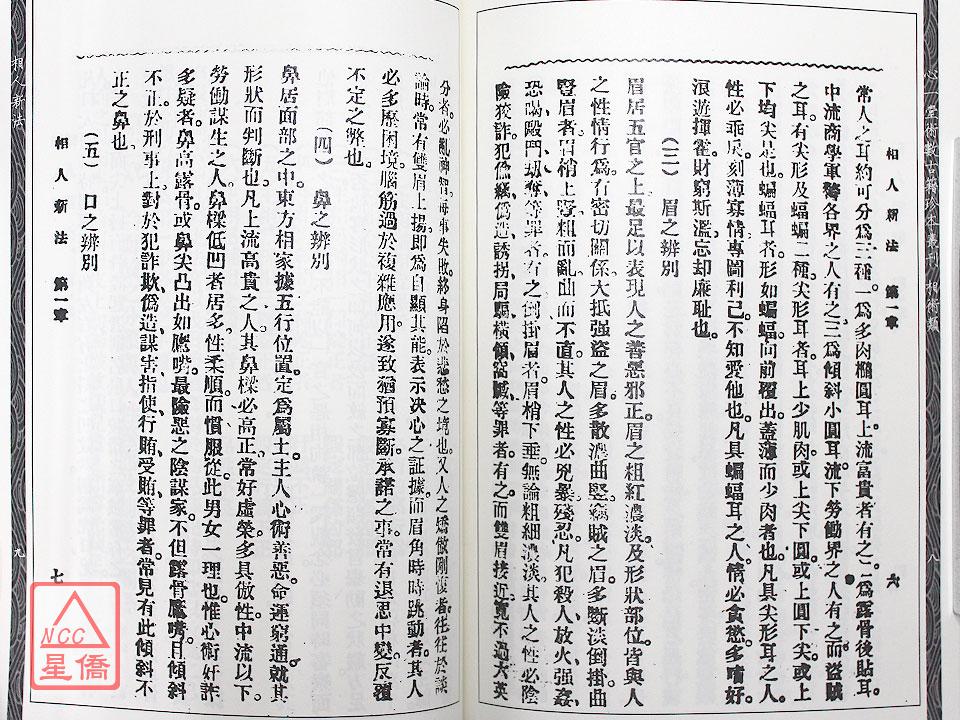 心一堂術數古籍珍本叢刊 相術類
八
相人新法 第一章
六
常人之耳約可分爲三種。一爲多肉橢圓耳上流富貴者有之。二爲露骨後貼耳。
中流商學軍警各界之人有之三爲傾斜小圓耳流下勞働界之人有之。而盜賊
之耳有尖形及蝠蝙二種。尖形耳者耳上少肌肉或上尖下圓或上圓下尖或上
下均尖是也。蝙蝠耳者形如蝙蝠向前覆出。蓋薄而少肉者也。凡具尖形耳之人。
性必乖戾。刻薄寡情專圖利己。不知愛他也。凡具蝙蝠耳之人。情必貪慾。多嗜好。
浪遊揮霍財窮斯濫。忘却廉耻也。
(三) 眉之辨別
眉居五官之上最足以表現人之善惡邪正。眉之粗紅濃淡及形狀部位。皆與人
之性情行爲有密切關係大抵强盜之眉多散濃曲竪。竊賊之眉。多斷淡倒掛曲
竪眉者眉梢上竪。粗而亂曲而不直其人之性必兇暴殘忍。凡犯殺人放火强姦
恐嚇毆鬥刼奪等罪者有之倒掛眉者眉梢下垂無論粗細濃淡其人之性必陰
險狡詐。犯偷竊、僞造、誘拐、局騙、橫傾、窩贓、等罪者。有之而雙眉接近寬不過大英
分者。必亂神智。每事失敗。終身陷於悲愁之境也。又人之矯傲剛愎者。往往於談
論時。常有雙眉上揚。即爲自顯其能。表示决心之証據。而眉角時時跳動者。其人
必多歷困境。腦筋過於複雜應用。遂致猶預寡斷。承諾之事。常有退思中變。反覆
不定之弊也。
(四) 鼻之辨別
鼻居面部之中東方相家據五行位置。定爲屬土。主人心術善惡。命運窮通。就其
形狀而判斷也。凡上流高貴之人。其鼻樑必高正。常好虛榮。多具傲性。中流以下。
勞働謀生之人。鼻樑低凹者居多。性柔順。而慣服從。此男女一理也。惟心術奸詐
多疑者。鼻高露骨。或鼻尖凸出如鷹嘴。最險惡之陰謀家。不但露骨鷹嘴。且傾斜
不正。於刑事上。對於犯詐欺、僞造、謀害、指使、行賄、受賄、等罪者。常見有此傾斜不
正之鼻也
(五) 口之辨別
相人新法 第一章
七
相人新法
九
NCC
星僑